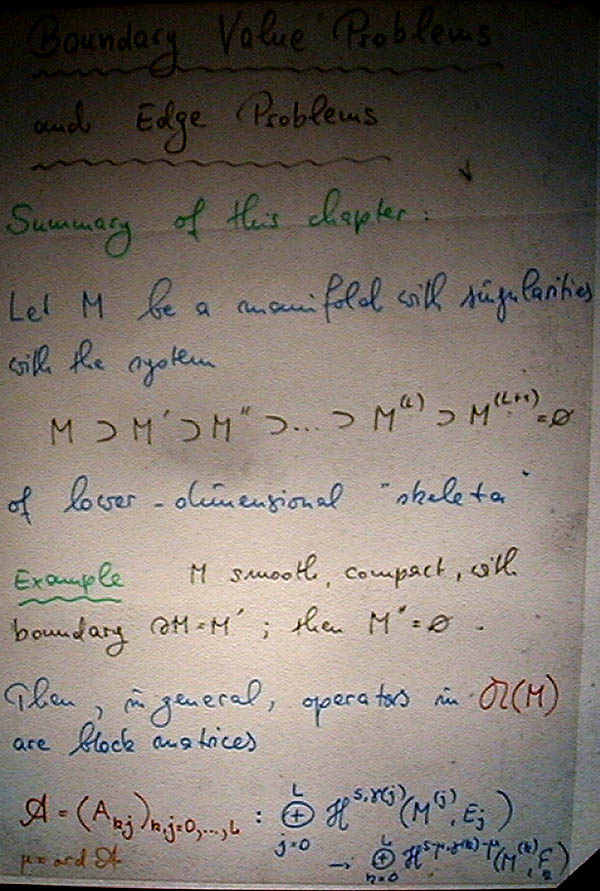 Boundary Value Problems
and Edge Problems
Summary of this chapter:
Let M be a manifold with singularities
with the system
M ⊃ M' ⊃ M'' ⊃ ... ⊃ M^(L) ⊃ M^(L+1) = ∅
of lower-dimensional "skeleta"
Example M smooth, compact, with
boundary ∂M = M' ; then M'' = ∅ .
Then, in general, operators in 𝔄(M)
are block matrices
𝒜 = (A_kj)_k,j=0,...,L : ⊕_{j=0}^{L} ℋ^{s,γ(j)}(M^(j), E_j)
μ = ord 𝒜 → ⊕_{k=0}^{L} ℋ^{s-μ,γ(k)-μ}(M^(k), F_k)